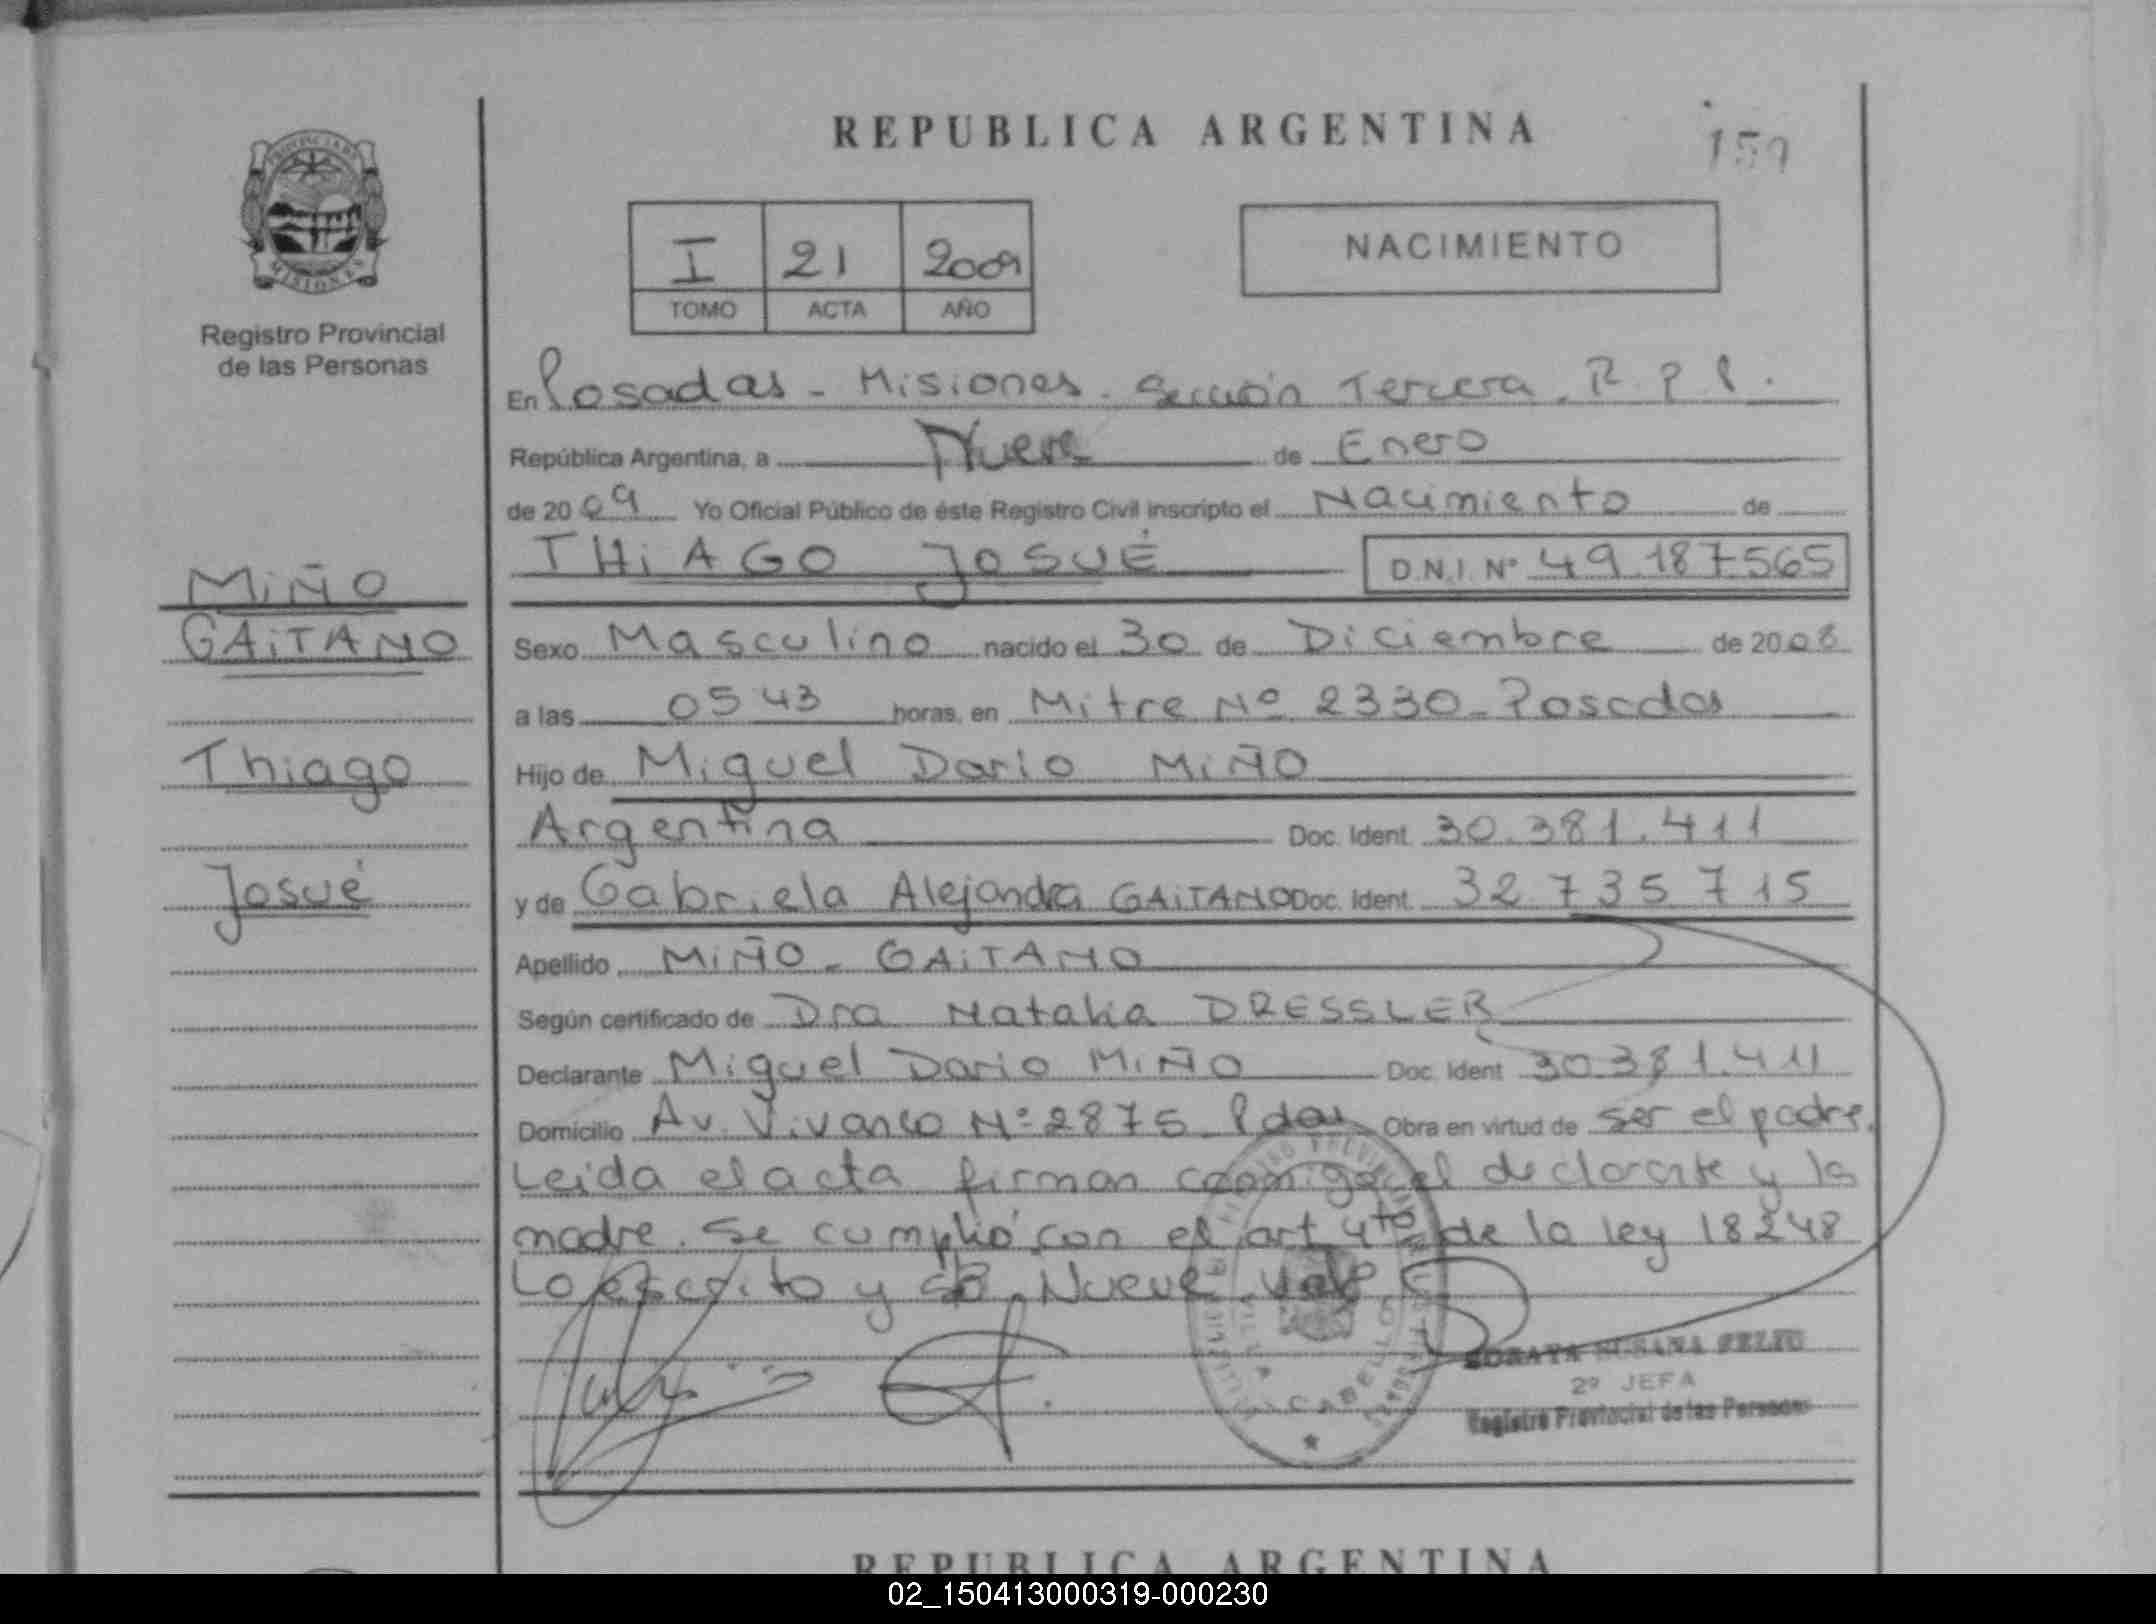 REPUBLICA ARGENTINA
159
PROVINCIA DE
MISIONES
Registro Provincial
de las Personas
I 21 2009
TOMO ACTA AÑO
NACIMIENTO
En Posadas - Misiones. Sección Tercera. R. P. P.
República Argentina, a Nueve de Enero
de 2009 Yo Oficial Público de éste Registro Civil inscripto el Nacimiento de
THiAGO JOSUÉ D.N.I. Nº 49.187565
MiÑO
GAiTANO
Thiago
Josué
Sexo Masculino nacido el 30 de Diciembre de 2008
a las 05 43 horas, en Mitre Nº 2330 - Posadas
Hijo de Miguel Dario MiÑO
Argentina Doc. Ident. 30.381.411
y de Gabriela Alejandra GAiTANO Doc. Ident. 32 735 715
Apellido MiÑO - GAiTANO
Según certificado de Dra Natalia DRESSLER
Declarante Miguel Dario MiÑO Doc. Ident 30.381.411
Domicilio Av. Vivanco Nº 2875 Pdas Obra en virtud de ser el padre.
Leida el acta firman conmigo el declarante y la
madre. Se cumplió con el art 4to de la ley 18248
Lo escrito y Nueve vale.
SORAYA SUSANA FELIU
2º JEFA
Registro Provincial de las Personas
REPUBLICA ARGENTINA
02_150413000319-000230